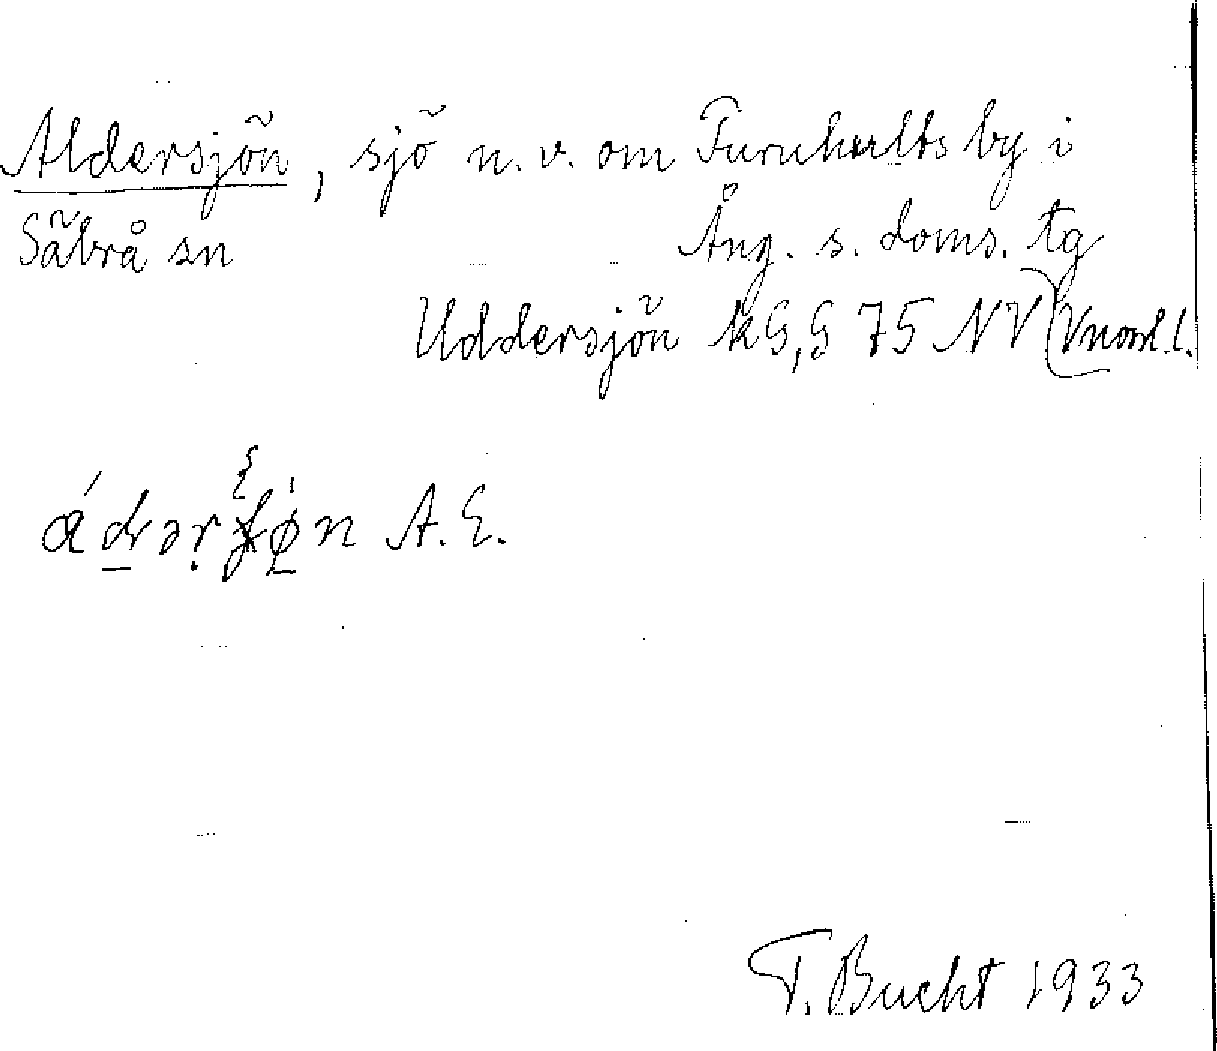 Aldersjön, sjö n.v. om Furuhults by i
Säbrå sn Ång. s. doms. tg
Uddersjön kG,G 75 NV
A.E.
T. Bucht 1933